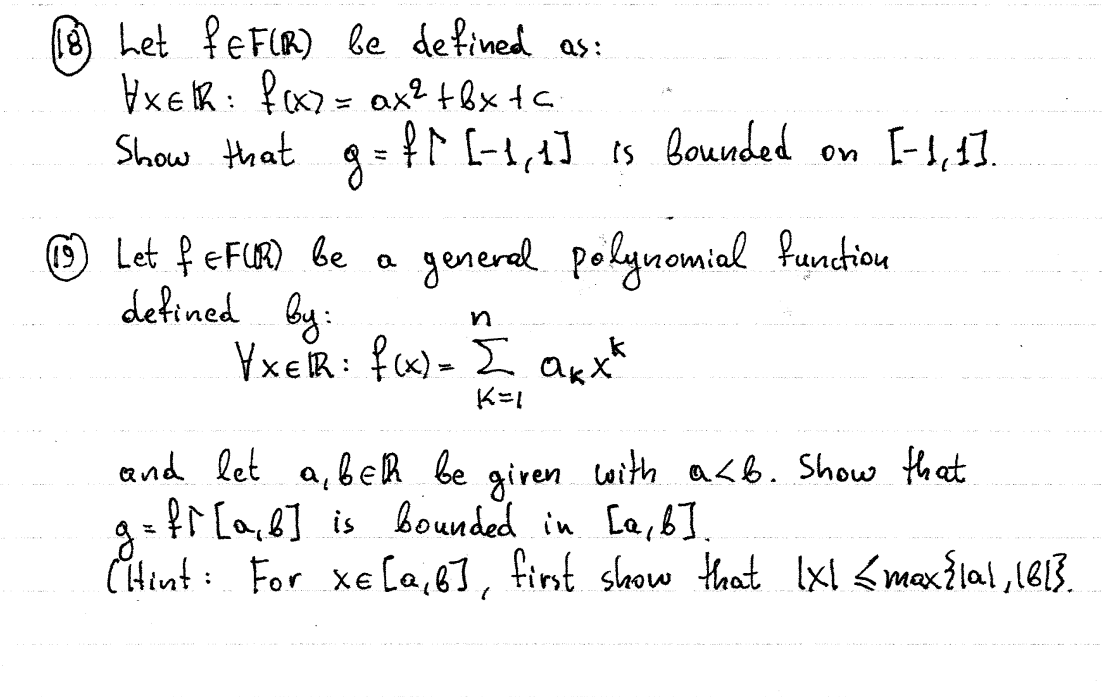 (18) Let f∈F(ℝ) be defined as:
∀x∈ℝ: f(x) = ax² + bx + c
Show that g = f↾[-1,1] is bounded on [-1,1].
(19) Let f∈F(ℝ) be a general polynomial function
defined by:
∀x∈ℝ: f(x) = ∑_{k=1}^{n} a_k x^k
and let a,b∈ℝ be given with a<b. Show that
g = f↾[a,b] is bounded in [a,b].
(Hint: For x∈[a,b], first show that |x| ≤ max{|a|,|b|}.